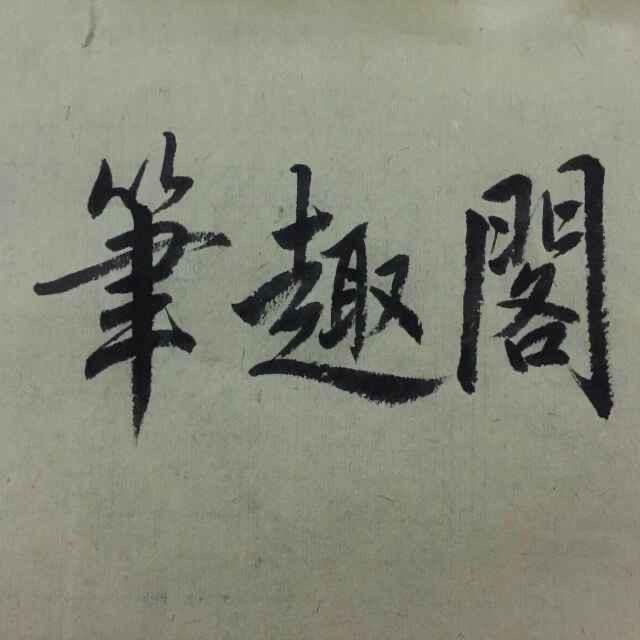 筆趣閣